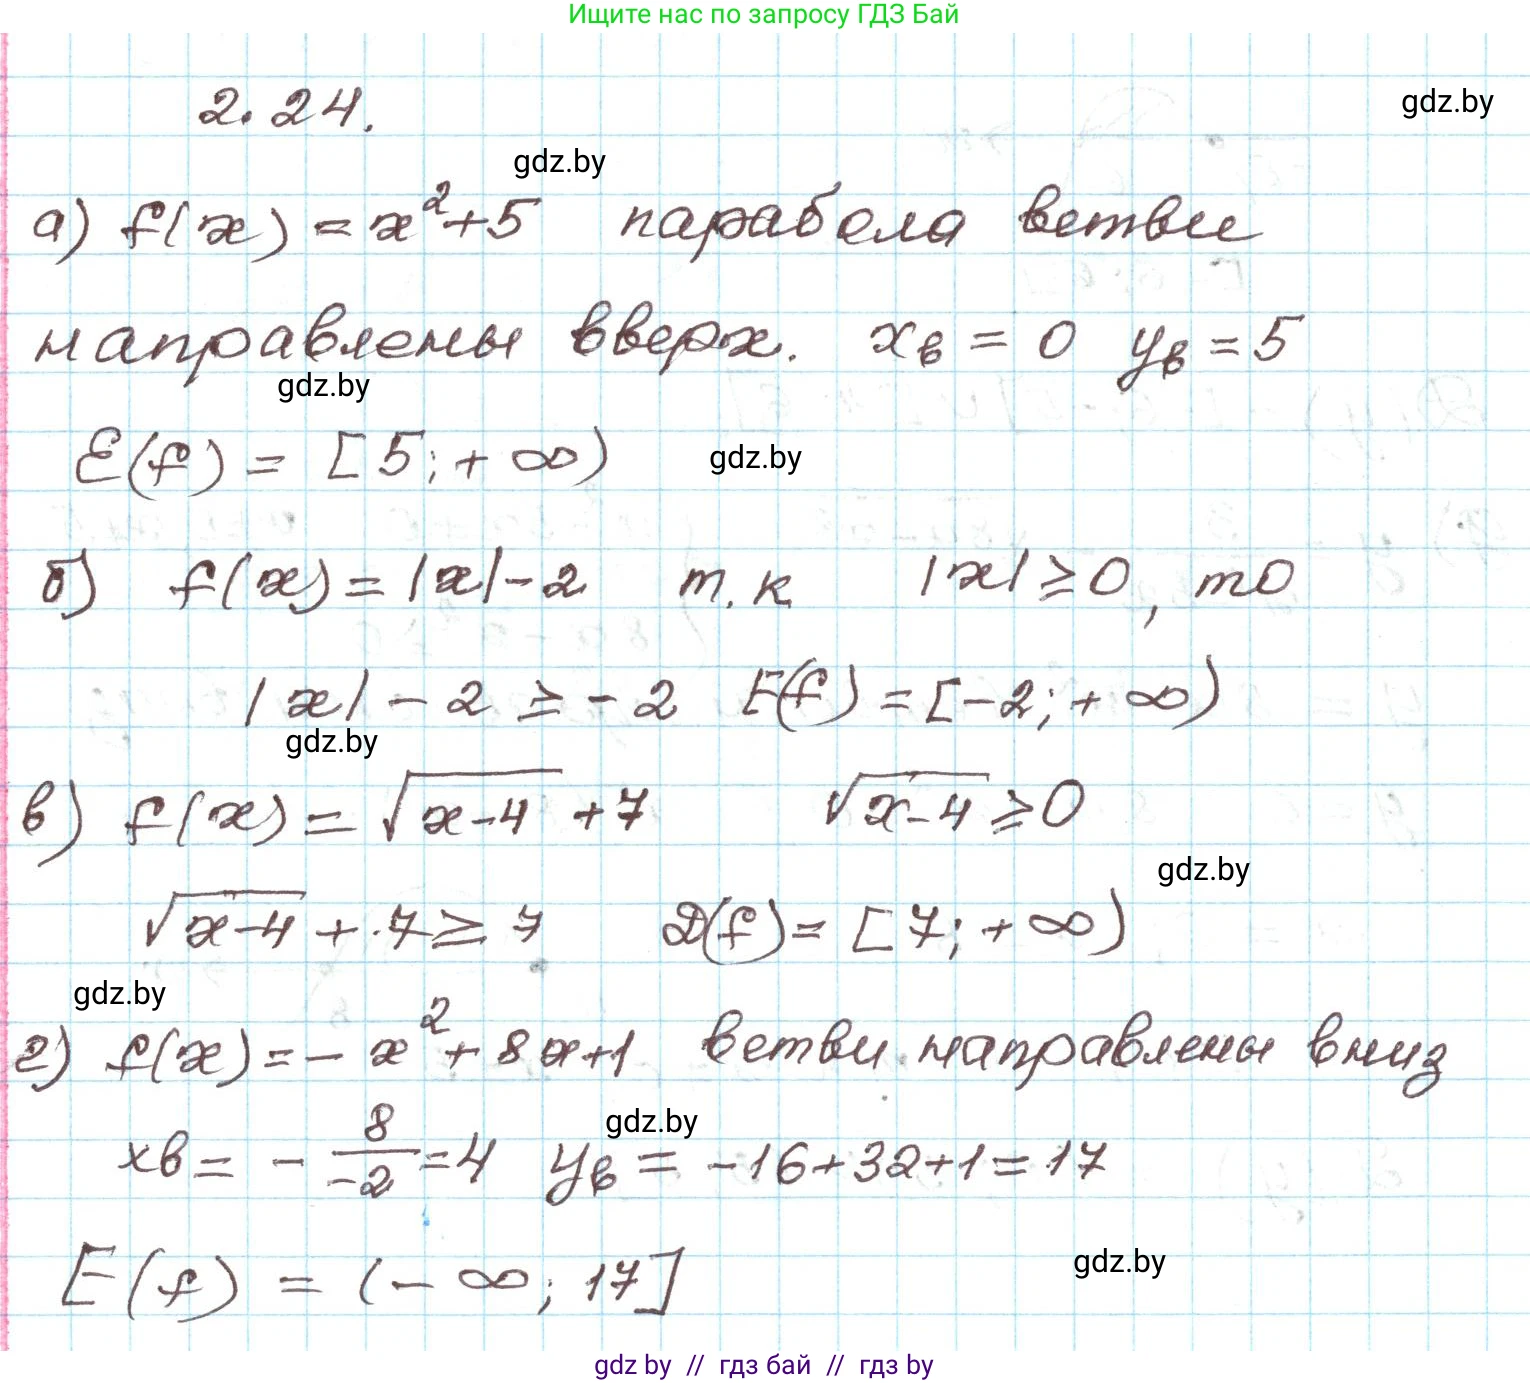 Ищите нас по запросу ГДЗ Бай
2.24.
gdz.by
gdz.by
а) f(x) = x²+5 парабола ветви
направлены вверх. xв = 0 yв = 5
gdz.by
E(f) = [5; + ∞)
gdz.by
б) f(x) = |x| - 2 т.к |x| ≥ 0, то
|x| - 2 ≥ - 2 E(f) = [-2; + ∞)
gdz.by
в) f(x) = √(x-4) + 7 √(x-4) ≥ 0
gdz.by
√(x-4) + 7 ≥ 7 D(f) = [7; + ∞)
gdz.by
г) f(x) = - x² + 8x+1 ветви направлены вниз
gdz.by
xв = - 8/-2 = 4 yв = -16+32+1 = 17
gdz.by
E(f) = (- ∞; 17]
gdz by // гдз бай // гдз by